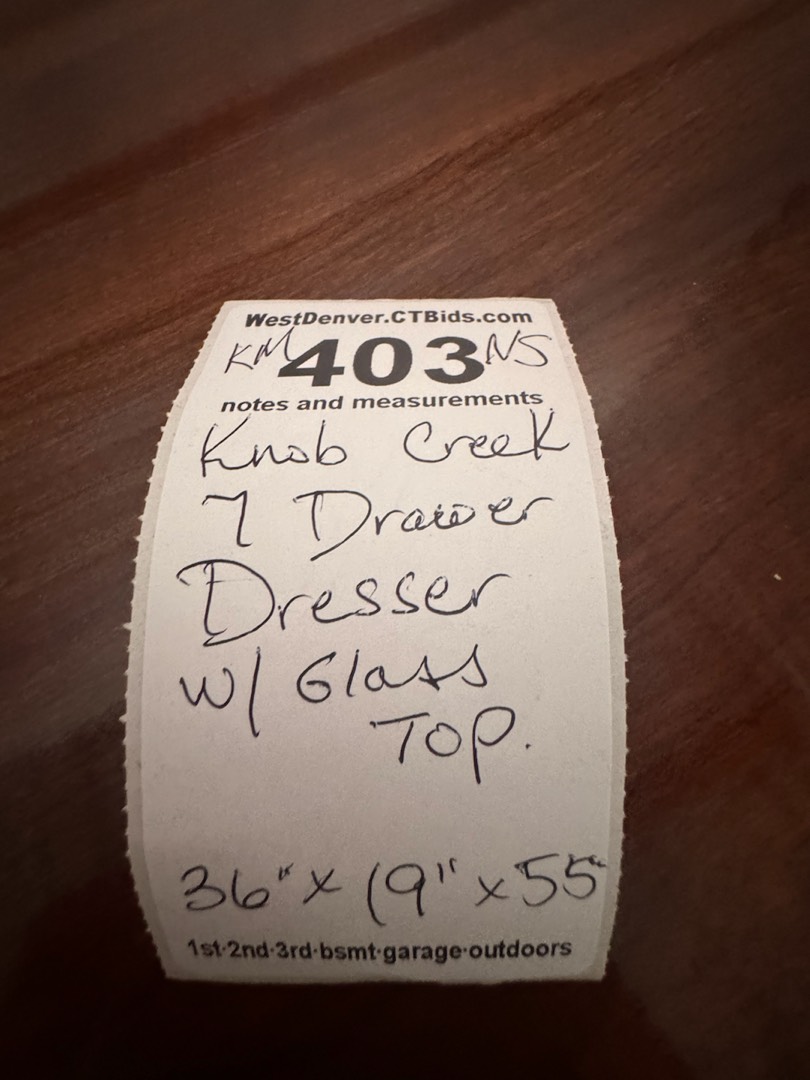 WestDenver.CTBids.com
KM 403 NS
notes and measurements
Knob Creek
7 Drawer
Dresser
w/ Glass
Top.
36" x 19" x 55"
1st·2nd·3rd·bsmt·garage·outdoors